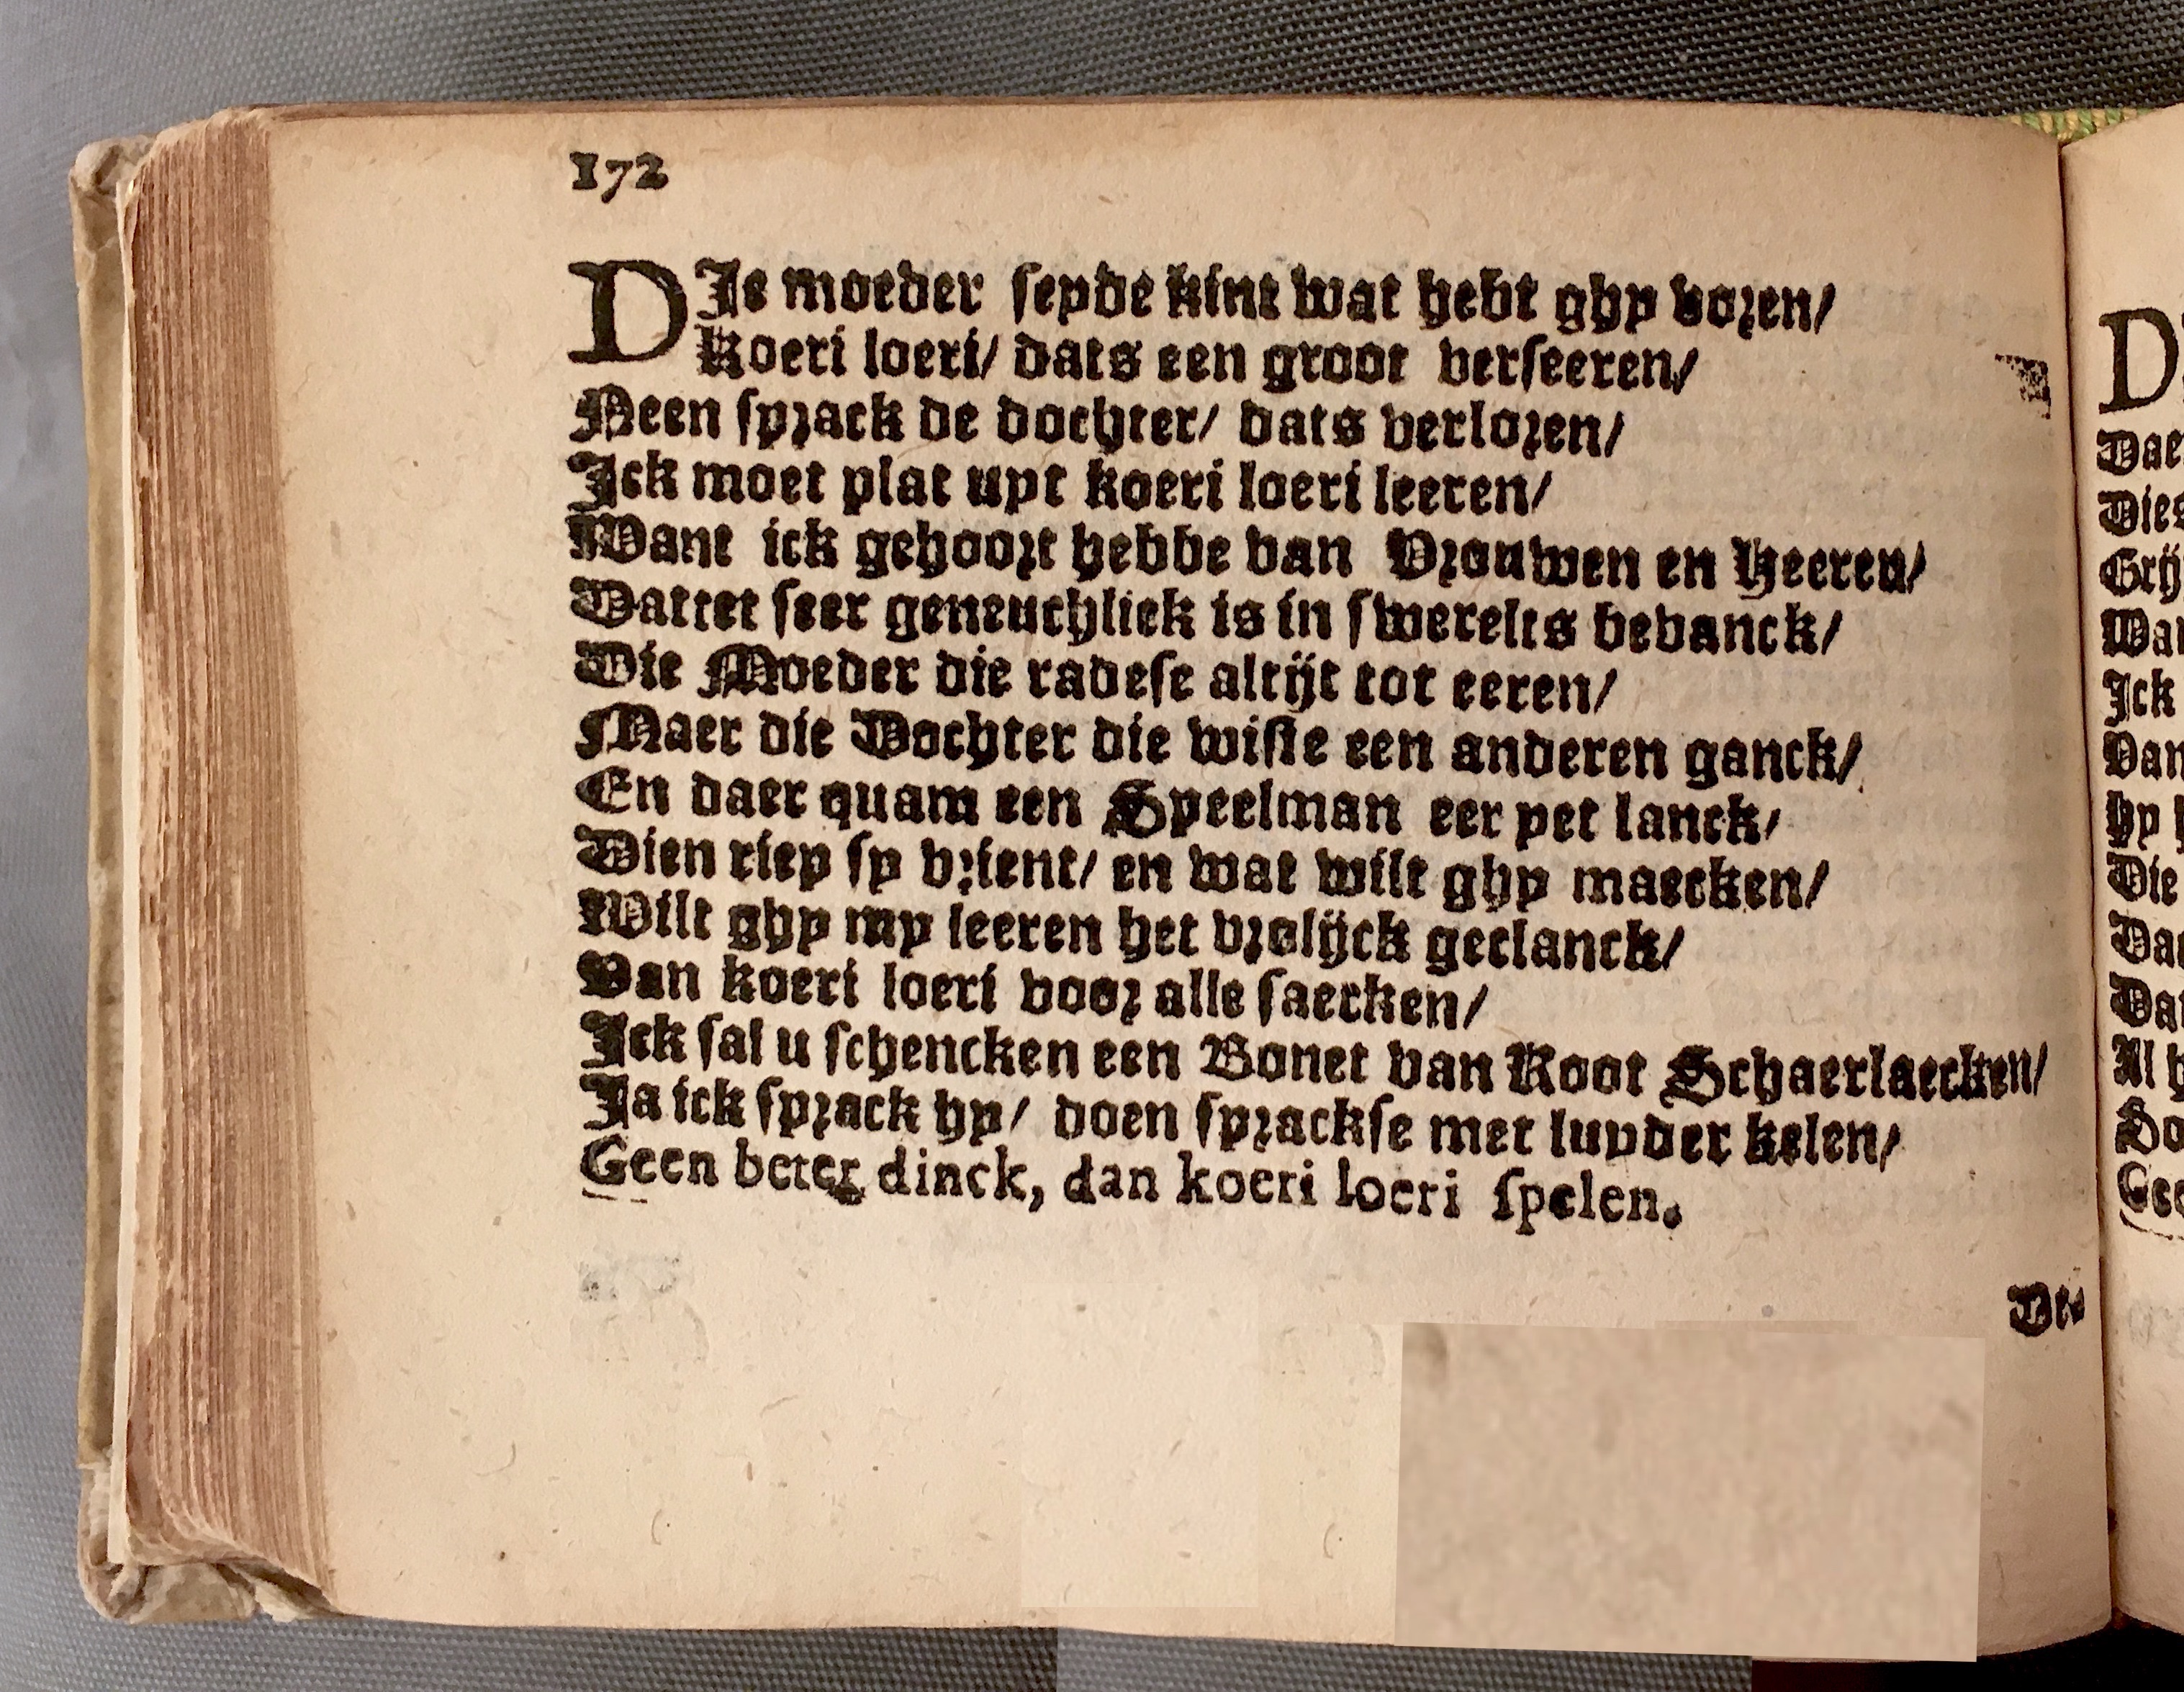 172
DIe moeder seyde kint wat hebt ghy voren/
Koeri loeri/ dats een groot verseeren/
Neen sprack de dochter/ dats verloren/
Ick moet plat upt koeri loeri leeren/
Want ick gehoort hebbe van Vrouwen en Heeren/
Dattet seer geneuchlick is in swerelts bevanck/
Die Moeder die radese altijt tot eeren/
Maer die Dochter die wiste een anderen ganck/
En daer quam een Speelman eer yet lanck/
Dien riep sy vrient/ en wat wilt ghy maecken/
Wilt ghy my leeren het vrolijck geclanck/
Van koeri loeri voor alle saecken/
Ick sal u schencken een Bonet van Root Schaerlaecken/
Ja ick sprack hy/ doen sprackse met luyder kelen/
Geen beter dinck, dan koeri loeri spelen.
D
Dae
Dies
Grij
Wan
Ick
Van
hy
Die
Dae
Dat
Al
So
Gee